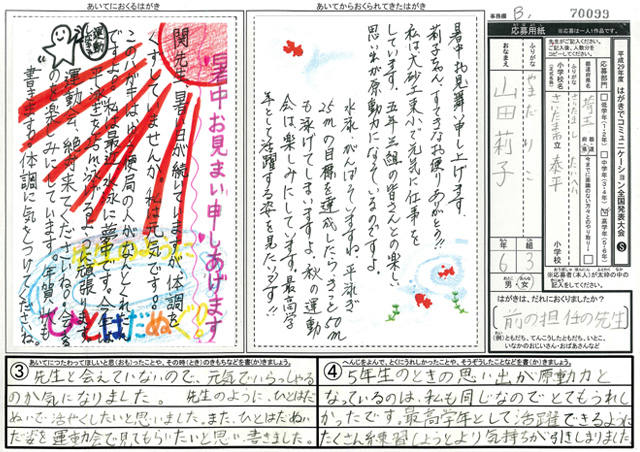 あいてにおくるはがき
暑中お見まい申しあげます
関先生、暑い日が続いていますが、体調を
くずしていませんか。私は元気です。
このハガキはゆう便局の人がくれたん
ですよ。私は最近、水泳に夢中です。今年は
運動会、絶対来てくださいね。会える
のを楽しみにしています。年賀ハガキも
書きます。体調に気をつけてくださいね。
先生のように
ひとはだぬぐ
あいてからおくられてきたはがき
暑中お見舞い申し上げます。
莉子さん、すてきなお便りありがとう!!
私は大砂土東小で元気に仕事を
しています。五年三組の皆さんとの楽しい
思い出が原動力になっているのですよ。
水泳がんばっていますね。平泳ぎ
25mの目標を達成したらきっと50m
も泳げてしまいますね。秋の運動
会は楽しみにしています。最高学
年として活躍する姿を見たいです!!
事務欄
B1
70099
応募用紙
※応募は一人1作品です。
平成29年度 はがきでコミュニケーション全国発表大会
先生がご記入ください。
ご記入後、人数分を
コピーしてください。
応募部門
低学年(1・2年)
中学年(3・4年)
高学年(5・6年)
都道府県名
埼玉
小学校名
さいたま市立 泰平
小学校
ふりがな
おなまえ
やまだ りこ
山田 莉子
6
年
3
組
男
女
はがきは、だれにおくりましたか?
前の担任の先生
(例)ともだち、てんこうしたともだち、いとこ、
いなかのおじいさん・おばあさんなど
③
あいてにつたわってほしいと思(おも)ったことや、その時(とき)のきもちなどを書(か)きましょう。
先生と会えていないので、元気でいらっしゃる
のか気になりました。先生のように、ひとはだ
ぬいで活やくしたいと思いました。また、ひとはだぬい
だ姿を運動会で見てもらいたいと思い、書きました。
④
へんじをよんで、とくにうれしかったことや、そうぞうしたことなどを書(か)きましょう。
5年生のときの思い出が原動力と
なっているのは、私も同じなのでとてもうれし
かったです。最高学年として活躍できるように
たくさん練習しようとより気持ちが引きしまりました